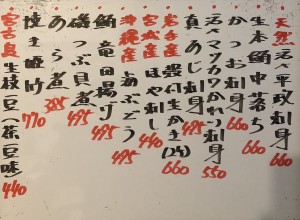 天然活〆平政刺身 660
生本鮪中落ち 660
かつお刺身 660
活〆マツカワかれい刺身 550
真あじ刺身 495
岩手産殻付生かき(2ヶ) 660
宮城産ほや刺し 440
沖縄産海ぶどう 495
鮪竜田揚げ 495
磯つぶ貝煮 495
あら煮 385
焼き姫竹 770
宮古島生枝豆(茶豆味) 440